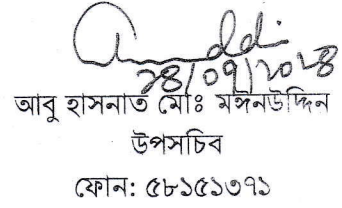 28/09/2018
আবু হাসনাত মোঃ মঈনউদ্দিন
উপসচিব
ফোন: ৫৮১৫১৩৭১